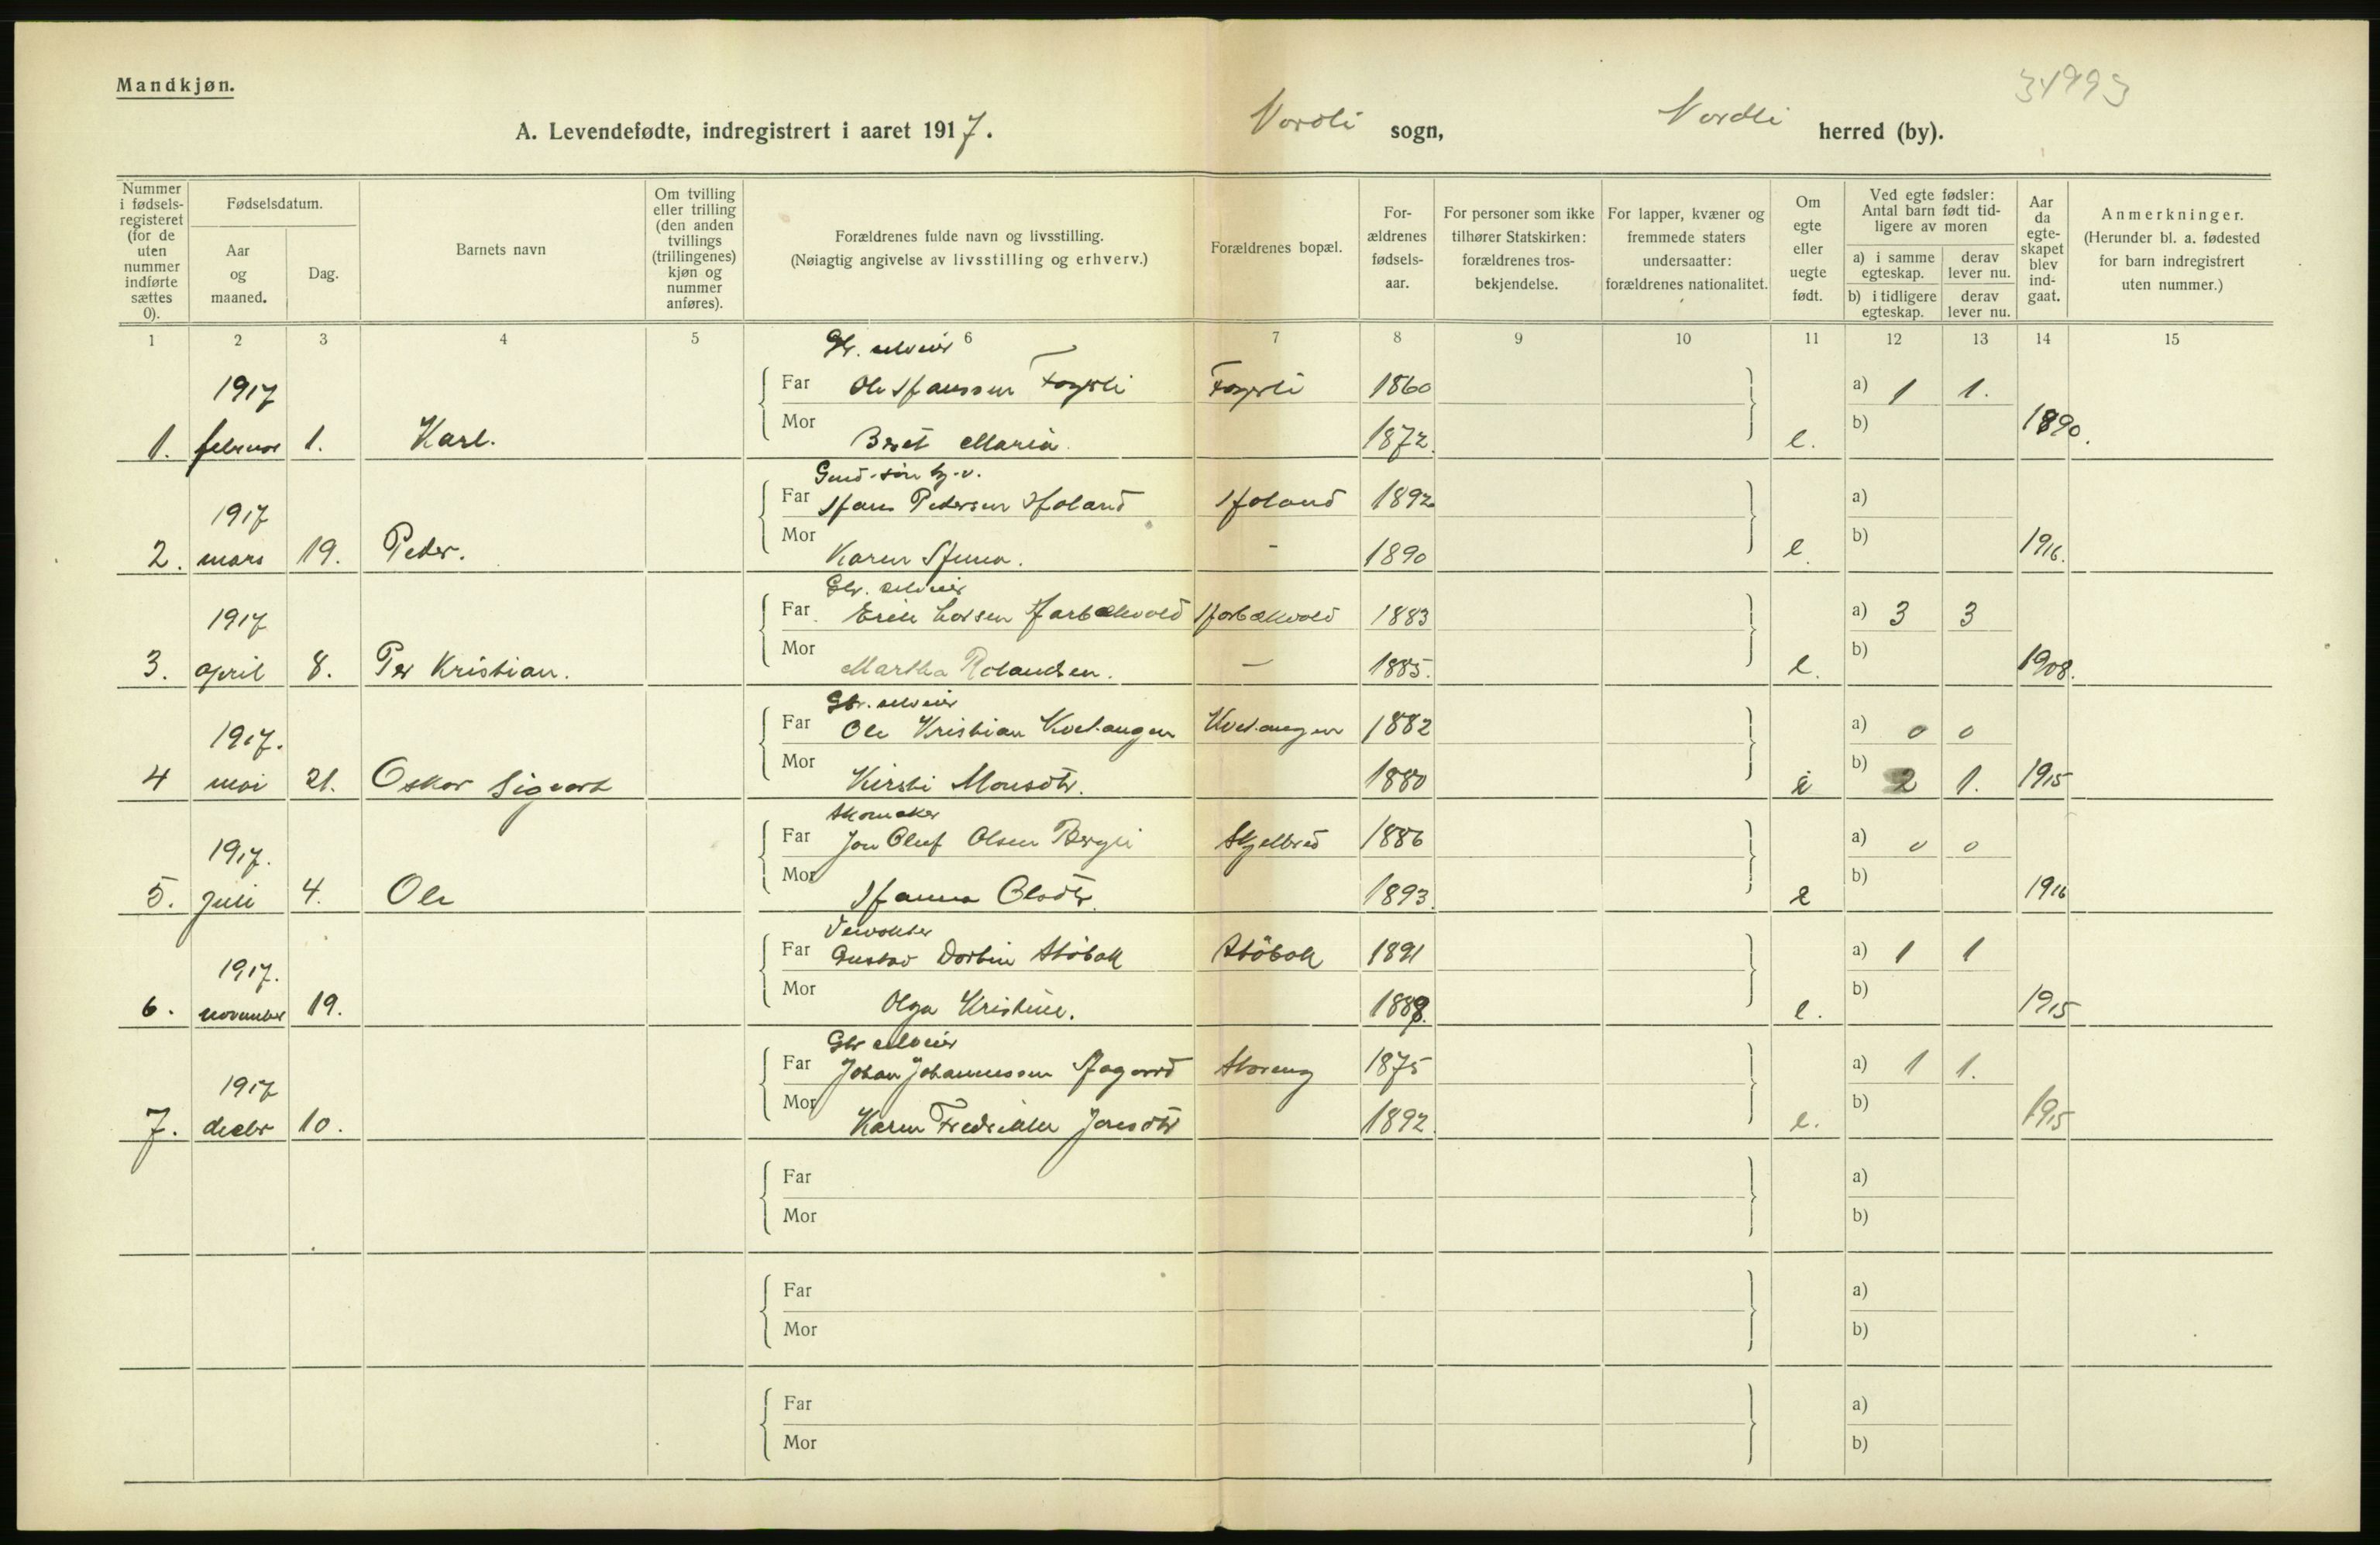 34993
Mandkjøn.
A. Levendefødte, indregistrert i aaret 1917. Nordli sogn, Nordli herred (by).
Nummer i fødselsregisteret (for de uten nummer indførte sættes 0).
Fødselsdatum.
Aar og maaned.
Dag.
Barnets navn
Om tvilling eller trilling (den anden tvillings (trillingenes) kjøn og nummer anføres).
Forældrenes fulde navn og livsstilling.
(Nøiagtig angivelse av livsstilling og erhverv.)
Forældrenes bopæl.
For-ældrenes fødsels-aar.
For personer som ikke tilhører Statskirken: forældrenes tros-bekjendelse.
For lapper, kvæner og fremmede staters undersaatter: forældrenes nationalitet.
Om egte eller uegte født.
Ved egte fødsler: Antal barn født tid-ligere av moren
a) i samme egteskap.
derav lever nu.
b) i tidligere egteskap.
derav lever nu.
Aar da egte-skapet blev ind-gaat.
Anmerkninger.
(Herunder bl. a. fødested for barn indregistrert uten nummer.)
1 2 3 4 5 6 7 8 9 10 11 12 13 14 15
Gbr. selveier
1917 Far Ole Hanssen Fagerli Fagerli 1860 a) 1 1.
1. februar 1. Karl. Mor Beret Maria. 1872. e. b) 1890.
Gaard-
1917 Far Hans Pedersen Holand Holand 1892 a)
2. mars 19. Peder. Mor Karen - 1890 e. b) 1916.
Gbr. selveier
1917 Far Erik Larsen Harbækvold Harbækvold 1883 a) 3 3
3. april 8. Per Kristian. Mor Martha Rolandsen. — 1885. e. b) 1908.
Gbr. selveier
1917. Far Ole Kristian Kvelangen Kvelangen 1882 a) 0 0
4 mai 21. Oskar Sigvart Mor Kirsti Monsdtr. 1880 e b) 2 1. 1915
Skomaker
1917. Far Jon Oluf Olsen Bergli Skjelbred 1886 a) 0 0
5. juli 4. Ole Mor Hanna Olsdtr. 1893. e b) 1916
Veivokter
1917. Far Gustav Dorbin Støbak Støbak 1891 a) 1 1
6. november 19. Mor Olga Kristine. 1888. e. b) 1915
Gbr selveier
1917 Far Johan Johannessen Hagard Storeng 1875 a) 1 1.
7. decbr 10. Mor Karen Fredrikke Jonsdtr 1892. e. b) 1915
Far a)
Mor b)
Far a)
Mor b)
Far a)
Mor b)